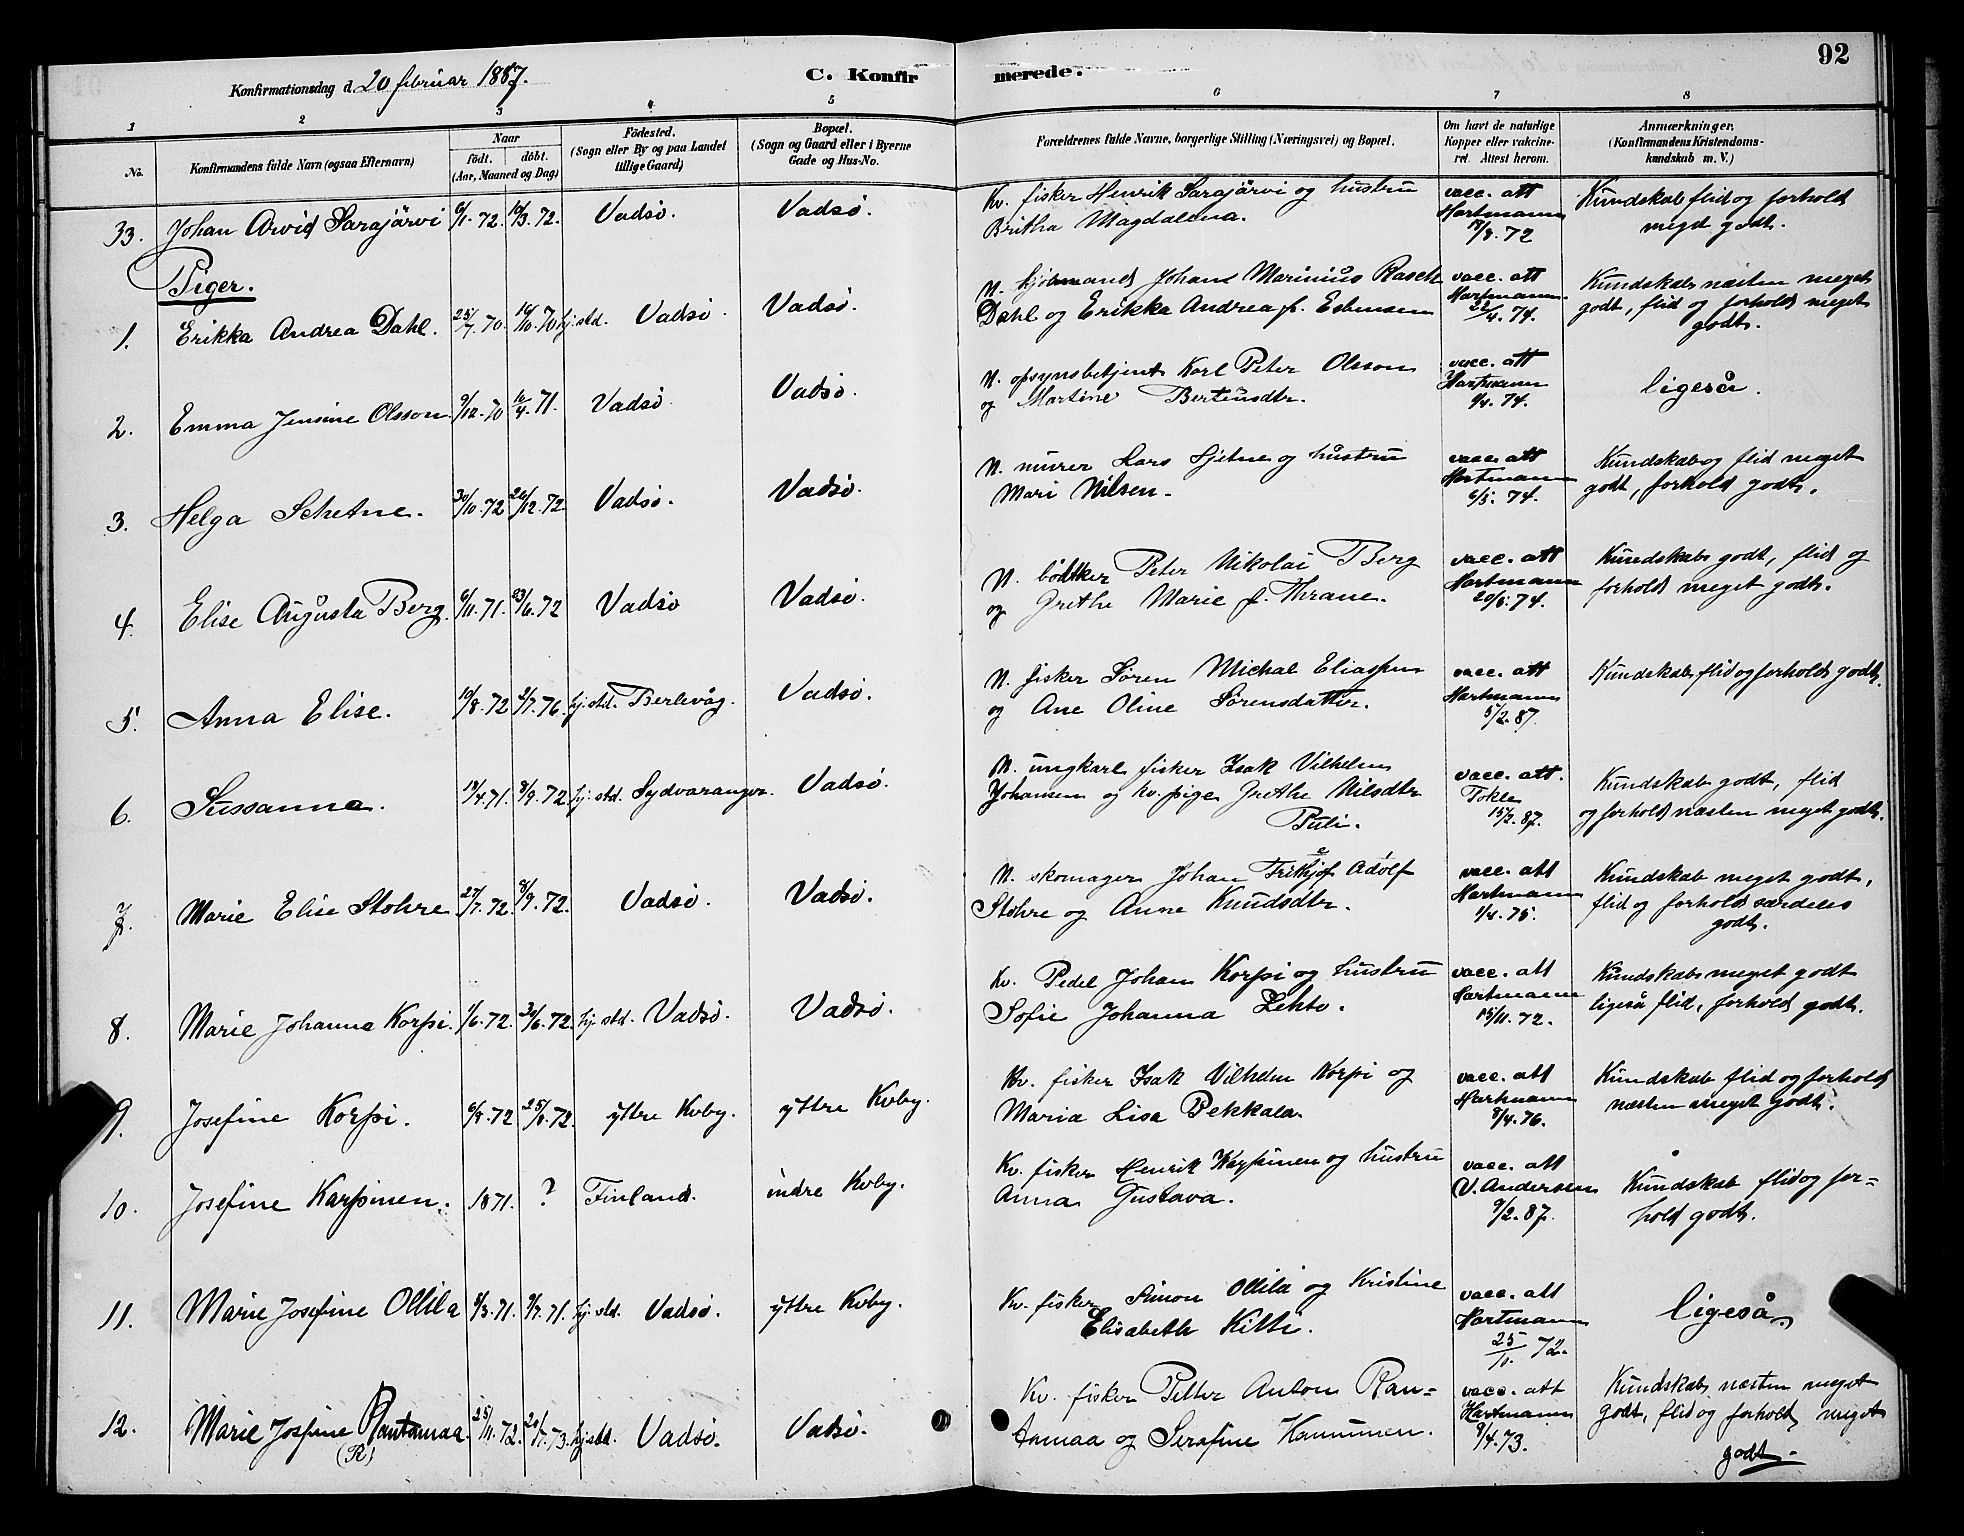 92
Konfirmationsdag d. 20 februar 1887.
C. Konfirmerede.
1 2 3 4 5 6 7 8
No. Konfirmandens fulde Navn (ogsaa Efternavn)
Naar
født. døbt.
(Aar, Maaned og Dag)
Fødested.
(Sogn eller By og paa Landet
tillige Gaard)
Bopæl.
(Sogn og Gaard eller i Byerne
Gade og Hus-No.
Forældrenes fulde Navne, borgerlige Stilling (Næringsvei) og Bopæl.
Om havt de naturlige
Kopper eller vakcine-
ret. Attest herom.
Anmærkninger.
(Konfirmandens Kristendoms-
kundskab m. V.)
33. Johan Arvid Sarajärvi 6/1. 72. 10/3. 72. Vadsö. Vadsö.
Kv. fisker Henrik Sarajärvi og hustru
Britha Magdalena.
vacc. att
Hartmann
17/8. 72
Kundskab flid og forhold
meget godt.
Piger.
1. Erikka Andrea Dahl. 25/7. 70. 16/10. 70 hj. std. Vadsö. Vadsö.
N. kjöbmand Johans Marinius Rasch
Dahl og Erikka Andrea f. Esbensen
vacc. att
Hartmann
22/4. 74.
Kundskab næsten meget
godt, flid og forhold meget
godt.
2. Emma Jensine Olsson 9/12. 70 16/4. 71. Vadsö. Vadsö.
N. opsynsbetjent Karl Peter Olsson
og Martine Bertinsdtr.
vacc. att
Hartmann
9/4. 74.
ligeså.
3. Helga Schetne. 30/10. 72 26/12. 72 Vadsö. Vadsö.
N. murer Lars Sjetne og hustru
Mari Nilsen.
vacc. att
Hartmann
6/5. 74.
Kundskab og flid meget
godt, forhold godt.
4. Elise Augusta Berg. 6/11. 71. 23/6. 72 Vadsö Vadsö.
N. bödker Peter Nikolai Berg
og Grethe Marie f. Thrane.
vacc. att
Hartmann
20/5. 74.
Kundskab godt, flid og
forhold meget godt.
5. Anna Elise. 19/8. 72 2/7. 76. hj. std. Berlevåg. Vadsö.
N. fisker Sören Michal Eliassen
og Ane Oline Sörensdatter.
vacc. att
Hartmann
5/2. 87.
Kundskab, flid og forhold godt.
6. Sussanna. 18/4. 71. 8/9. 72 hj. std. Sydvaranger. Vadsö.
N. ungkarl fisker Isak Vilhelm
Johansen og kv. pige Grethe Nilsdtr
Puli.
vacc. att.
Tokle
15/2. 87.
Kundskab godt, flid
og forhold næsten meget godt.
7. Marie Elise Stohre 27/7. 72. 8/9. 72. Vadsö. Vadsö.
N. skomager Johan Frithjof Adolf
Stohre og Anne Knudsdtr.
vacc. att
Hartmann
1/4. 75.
Kundskab meget godt,
flid og forhold særdeles
godt.
8. Marie Johanna Korpi. 1/6. 72. 30/6. 72. hj. std. Vadsö. Vadsö.
Kv. Pedel Johan Korpi og hustru
Sofie Johanna Lehto.
vacc. att
Hartmann
15/11. 72.
Kundskab meget godt
ligeså flid, forhold godt.
9. Josefine Korpi. 6/8. 72 25/8. 72. yttre Kvby. yttre Kvby.
Kv. fisker Isak Vilhelm Korpi og
Maria Lisa Pekkala.
vacc. att
Hartmann
8/4. 76.
Kundskab flid og forhold
næsten meget godt.
10. Josefine Karpinen. 1871. ? Finland. indre Kvby.
Kv. fisker Henrik Karpinen og hustru
Anna Gustava.
vacc. att
V. Andersen
9/2. 87.
Kundskab flid og for-
hold godt.
11. Marie Josefine Ollila 8/3. 71. 9/7. 71. hj. std. Vadsö. yttre Kvby.
Kv. fisker Simon Ollila og Kristine
Elisabeth Kitti.
vacc. att
Hartmann
25/10. 72.
ligeså.
12. Marie Josefine Rantamaa. 25/11. 72. 20/7. 73. hj. std. Vadsö. Vadsö.
(R)
Kv. fisker Petter Anton Ran-
tamaa og Serafine Hannunen.
vacc. att
Hartmann
8/4. 73.
Kundskab næsten meget
godt, flid og forhold meget
godt.